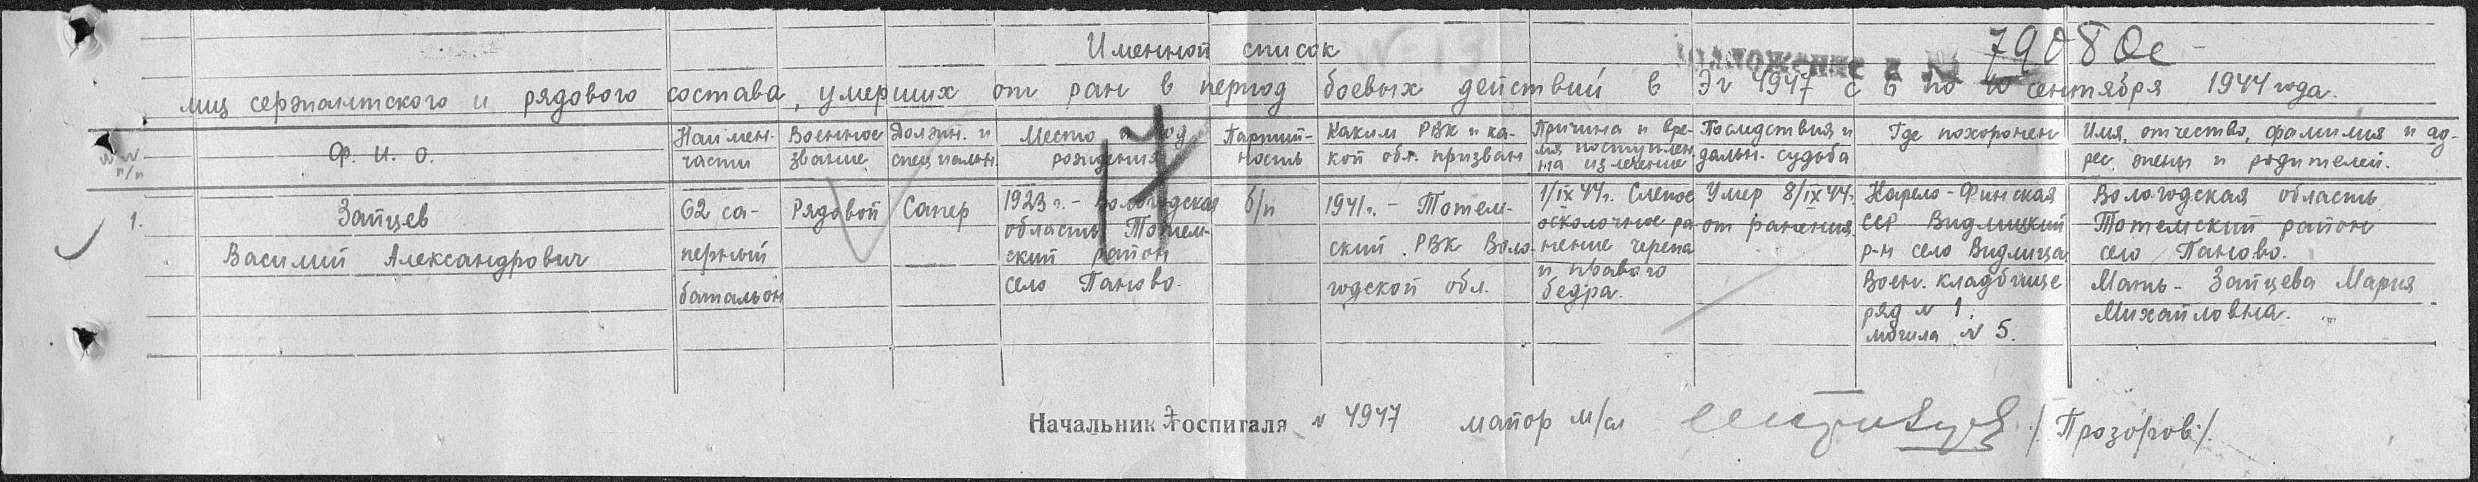 Именной список
Приложение к № 79080с
лиц сержантского и рядового состава, умерших от ран в период боевых действий в ЭГ 4947 с 6 по 10 сентября 1944 года.
№№ п/п
Ф. И. О.
Наимен. части
Военное звание
Должн. и специальн.
Место и год рождения
Партий-ность
Каким РВК и ка-кой обл. призван
Причина и вре-мя поступлен. на излечение
Последствия и дальн. судьба
Где похоронен
Имя, отчество, фамилия и ад-рес жены и родителей.
17
1.
Зайцев
Василий Александрович
62 са-
перный
батальон
Рядовой
Сапер
1923 г. - Вологодская
область Тотем-
ский район
село Паново.
б/п
1941 г. - Тотем-
ский РВК Воло-
годской обл.
1/IX 44г. Слепое
осколочное ра-
нение черепа
и правого
бедра.
Умер 8/IX 44г.
от ранения.
Карело-Финская
ССР Видлицкий
р-н село Видлица
Воен. кладбище
ряд № 1.
могила № 5.
Вологодская область
Тотемский район
село Паново.
Мать - Зайцева Мария
Михайловна.
Начальник Госпиталя № 4947 майор м/сл /Прозоров/.